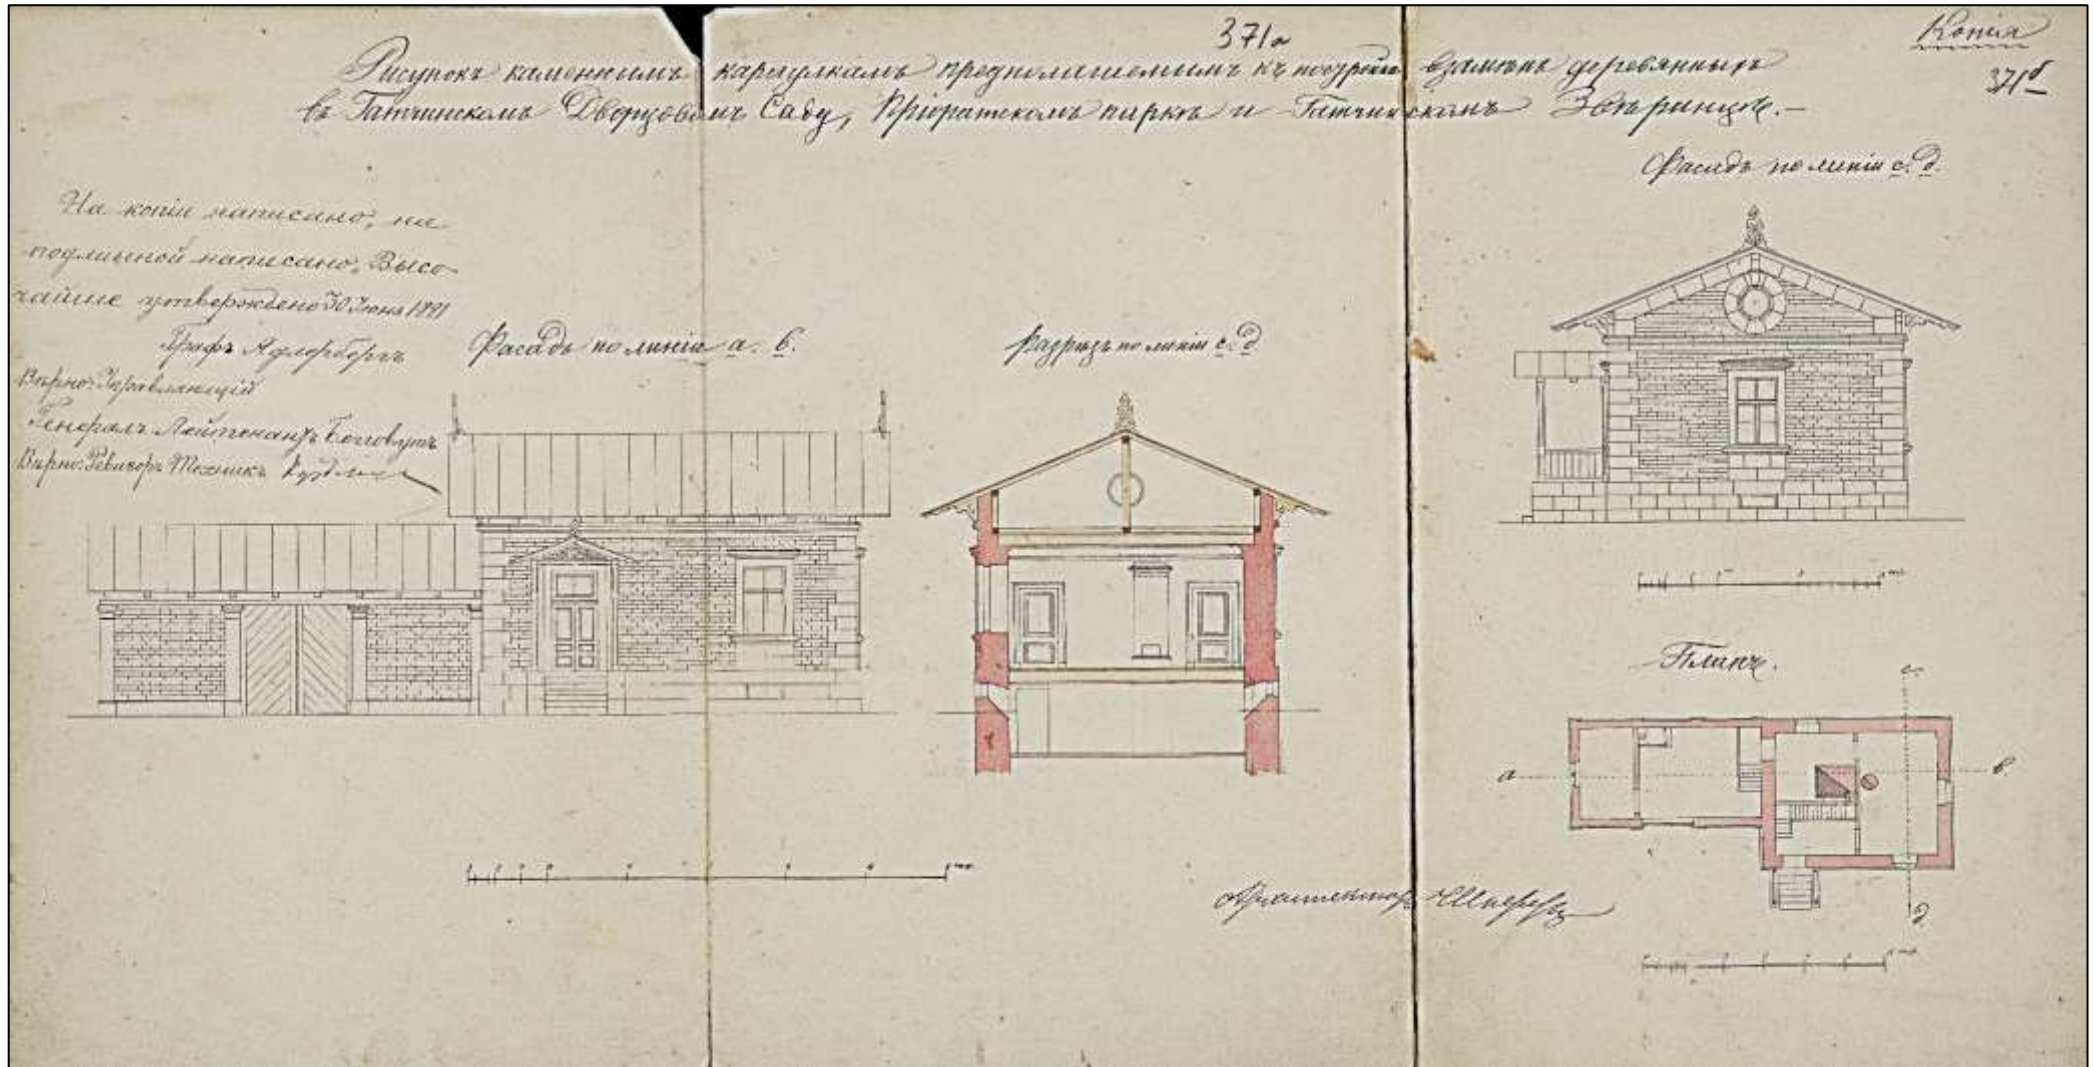 371а
Копія
371б
Рисунокъ каменнымъ караулкамъ предполагаемымъ къ постройкѣ взамѣнъ деревянныхъ
въ Гатчинскомъ Дворцовомъ Саду, Пріоратскомъ паркѣ и Гатчинскомъ Звѣринцѣ.-
Фасадъ по линіи с. д.
На копіи написано, на
подлинной написано, Высо
чайше утверждено 30 Іюня 1881
Графъ Адлербергъ
Вѣрно: Управляющій
Генералъ Лейтенантъ Боговутъ
Вѣрно: Ревизоръ Техникъ
Фасадъ по линіи а. б.
Разрѣзъ по линіи с. д
Планъ.
с.
а
в.
д
Архитекторъ